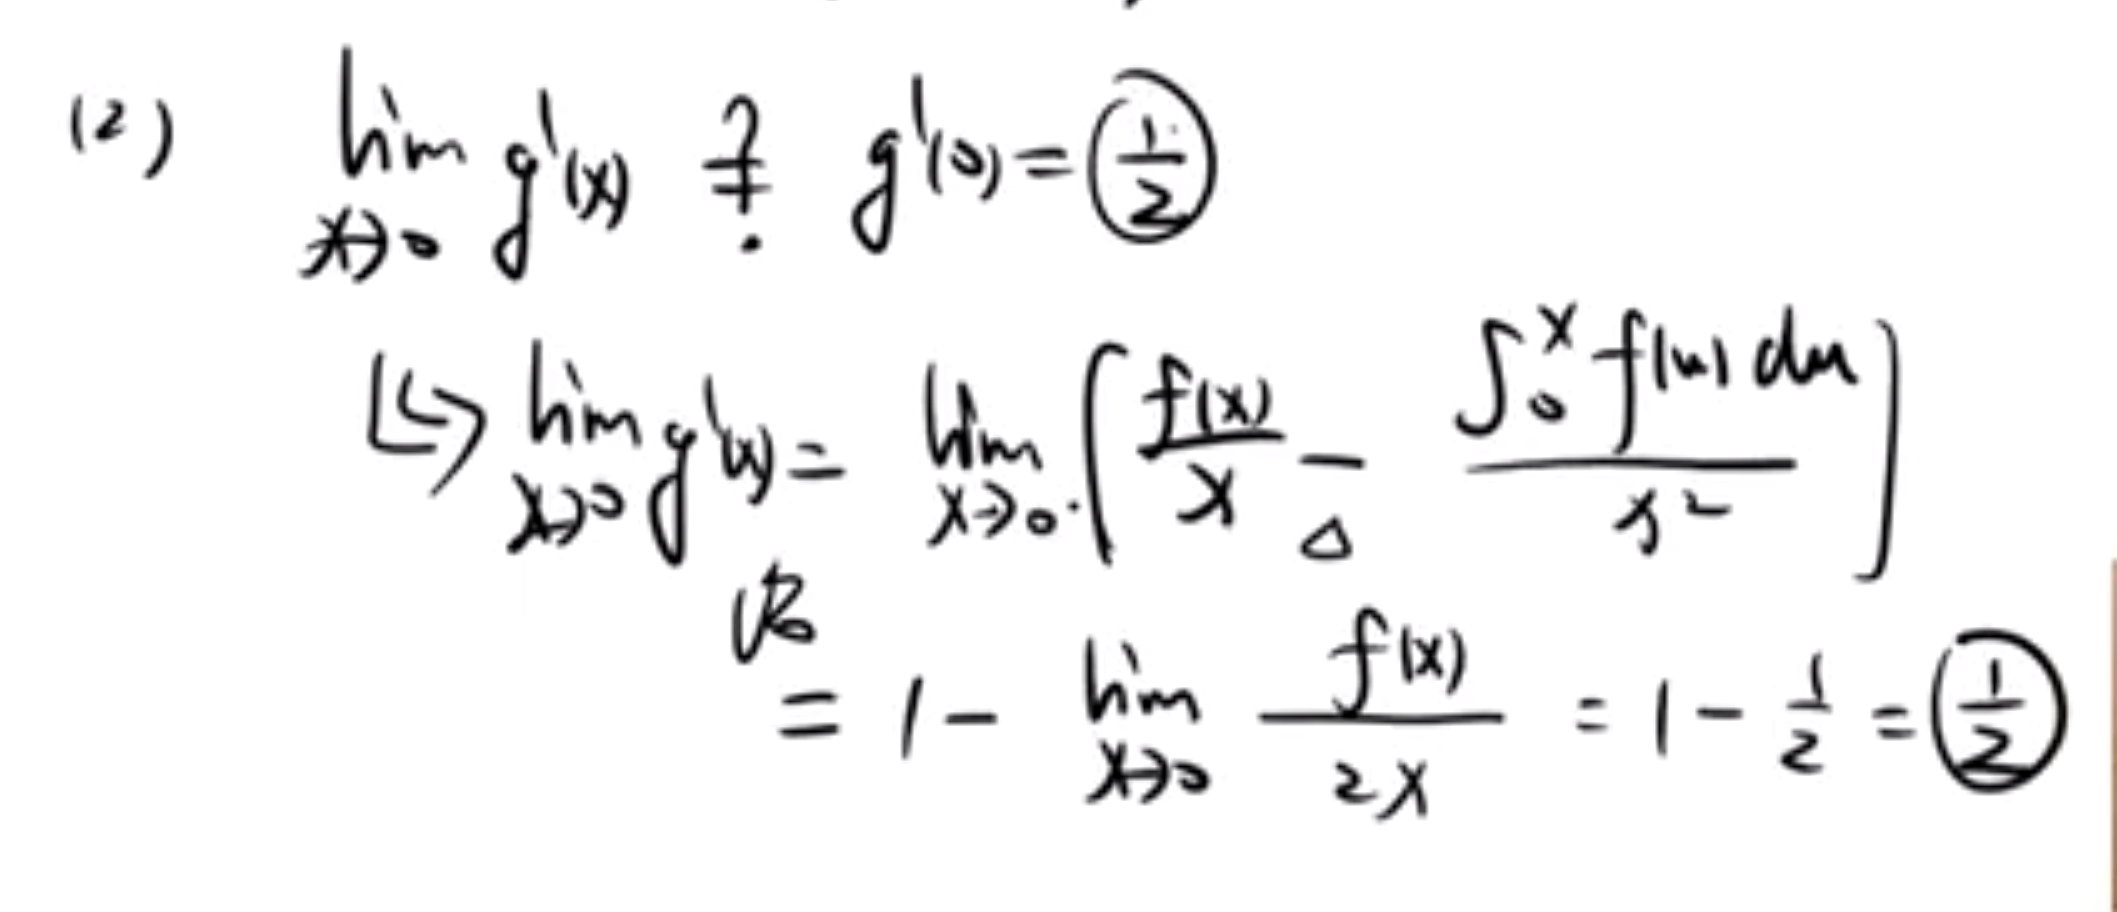 (2) lim x→0 g'(x) =? g'(0) = 1/2
↳ lim x→0 g'(x) = lim x→0 [ f(x)/x - ∫₀ˣ f(u) du / x² ]
= 1 - lim x→0 f(x)/2x = 1 - 1/2 = 1/2